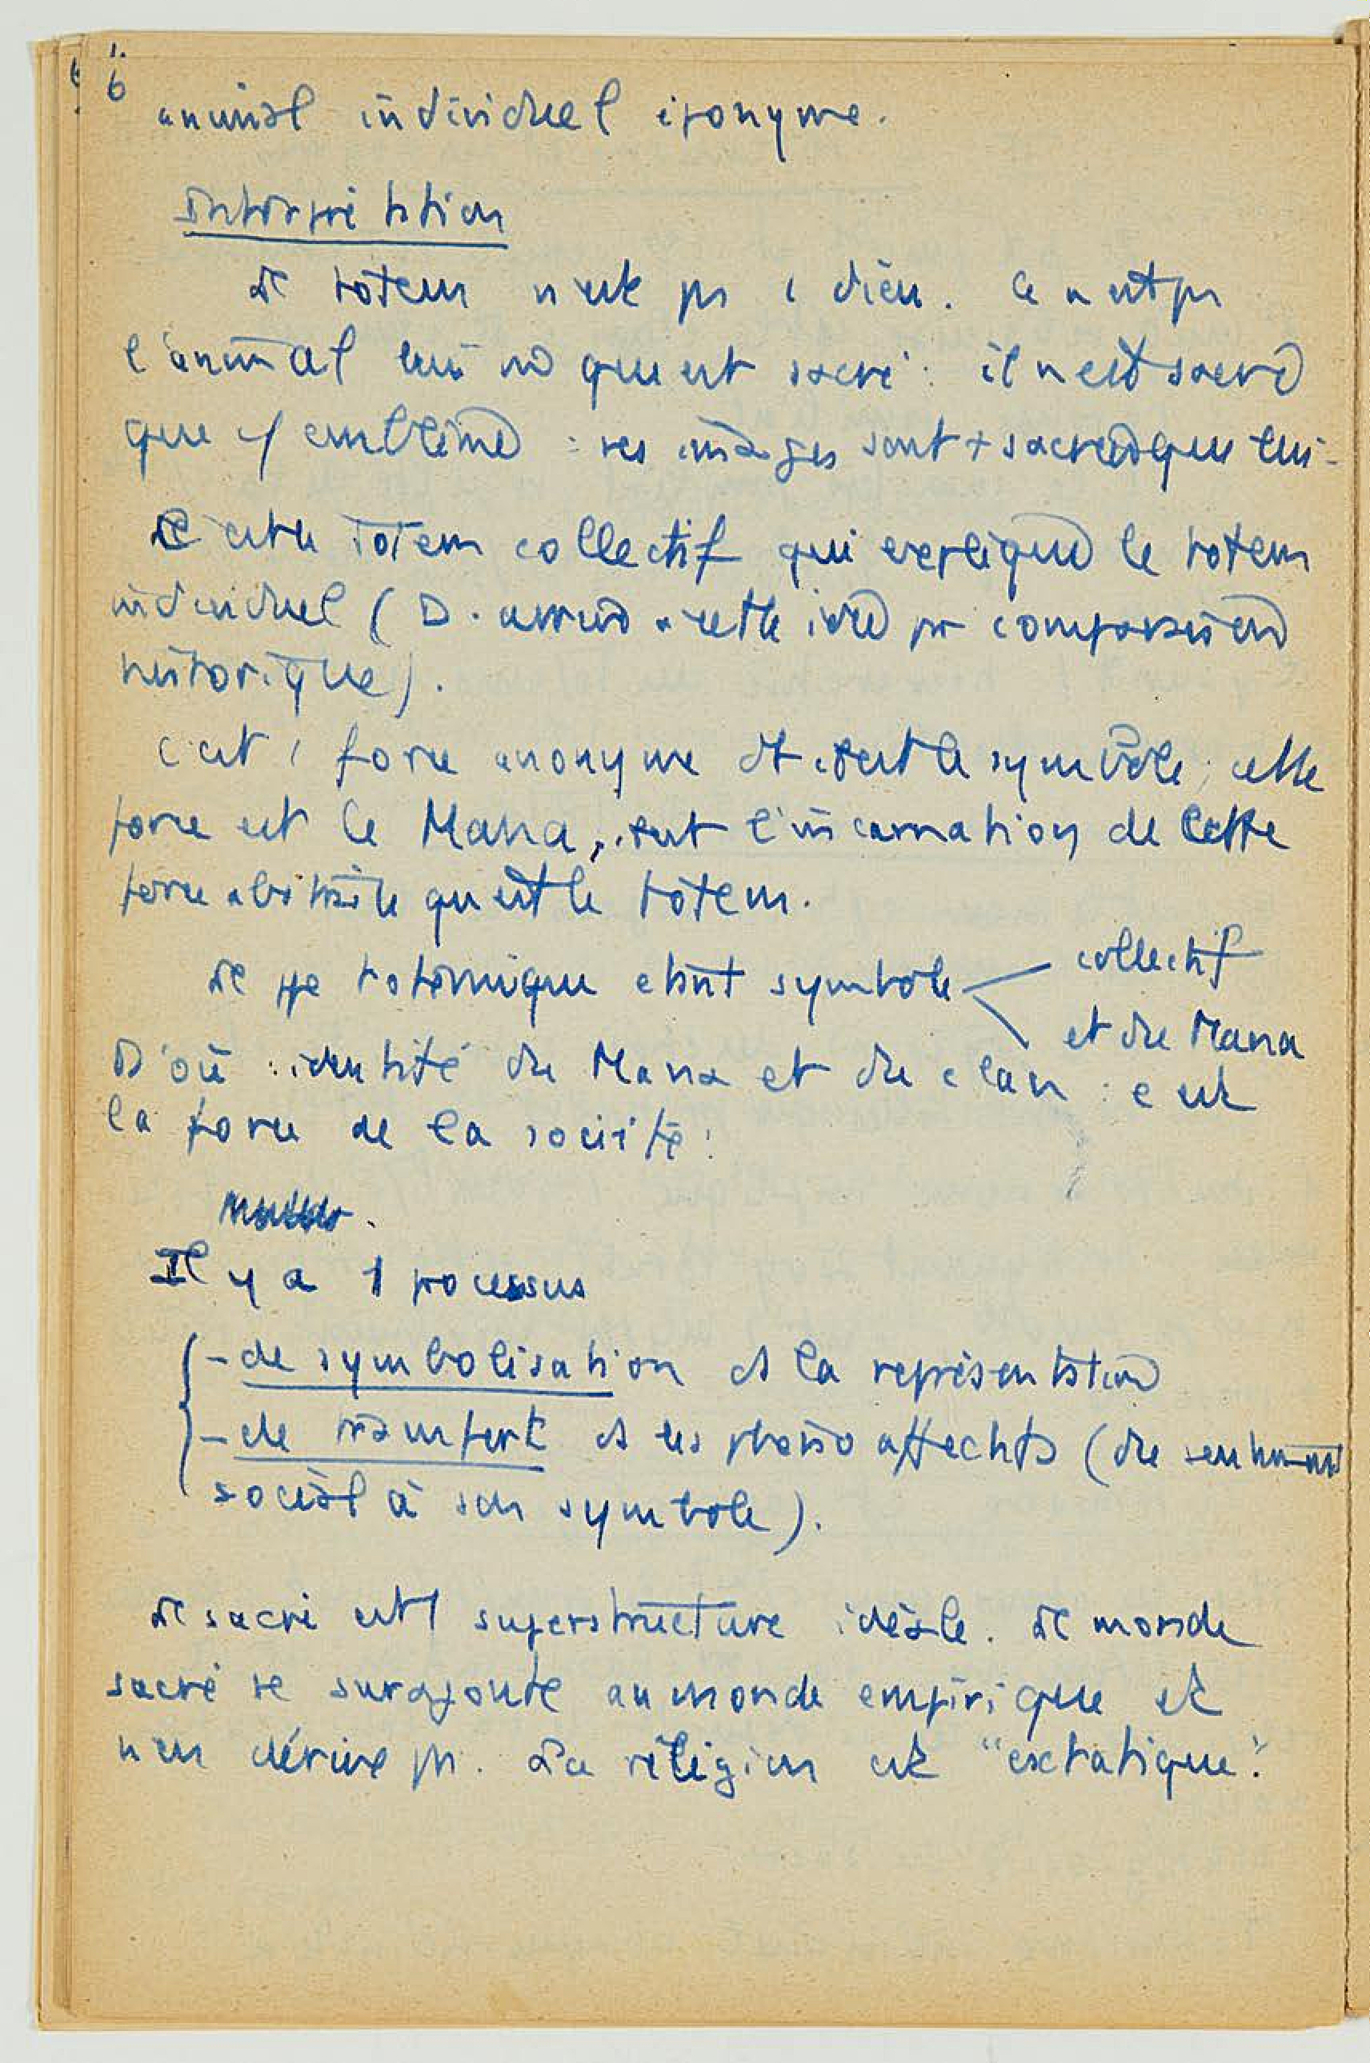 6
animal individuel éponyme.
Interprétation
Le totem n'est pas 1 dieu. Ce n'est pas
l'animal lui-m̂ qui est sacré : il n'est sacré
que emblème : ses images sont + sacrées que lui.
C'est le Totem collectif qui explique le totem
individuel (D. arrive à cette idée par comparaison
historique).
C'est 1 force anonyme dt c'est le symbole ; cette
force est le Mana, c'est l'incarnation de cette
force abstraite qu'est le totem.
Le totémique étant symbole collectif
et du Mana
D'où : identité du Mana et du clan : c'est
la force de la société.
Il y a 1 processus
- de symbolisation ds la représentation
- de transfert ds les affectifs (du sentiment
social à son symbole).
Le sacré est 1 superstructure idéale. Le monde
sacré se surajoute au monde empirique et
n'en dérive pas. La religion est "extatique".